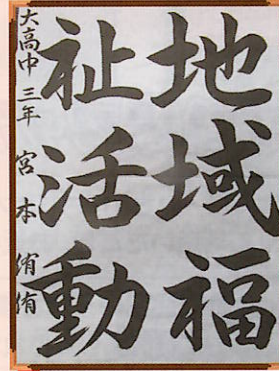 地域福
祉活動
大高中 三年 宮本 侑侑